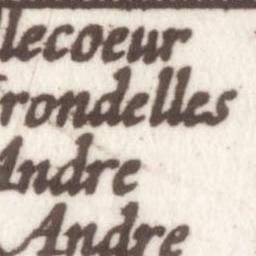 lecoeur
rondelles
Andre
Andre